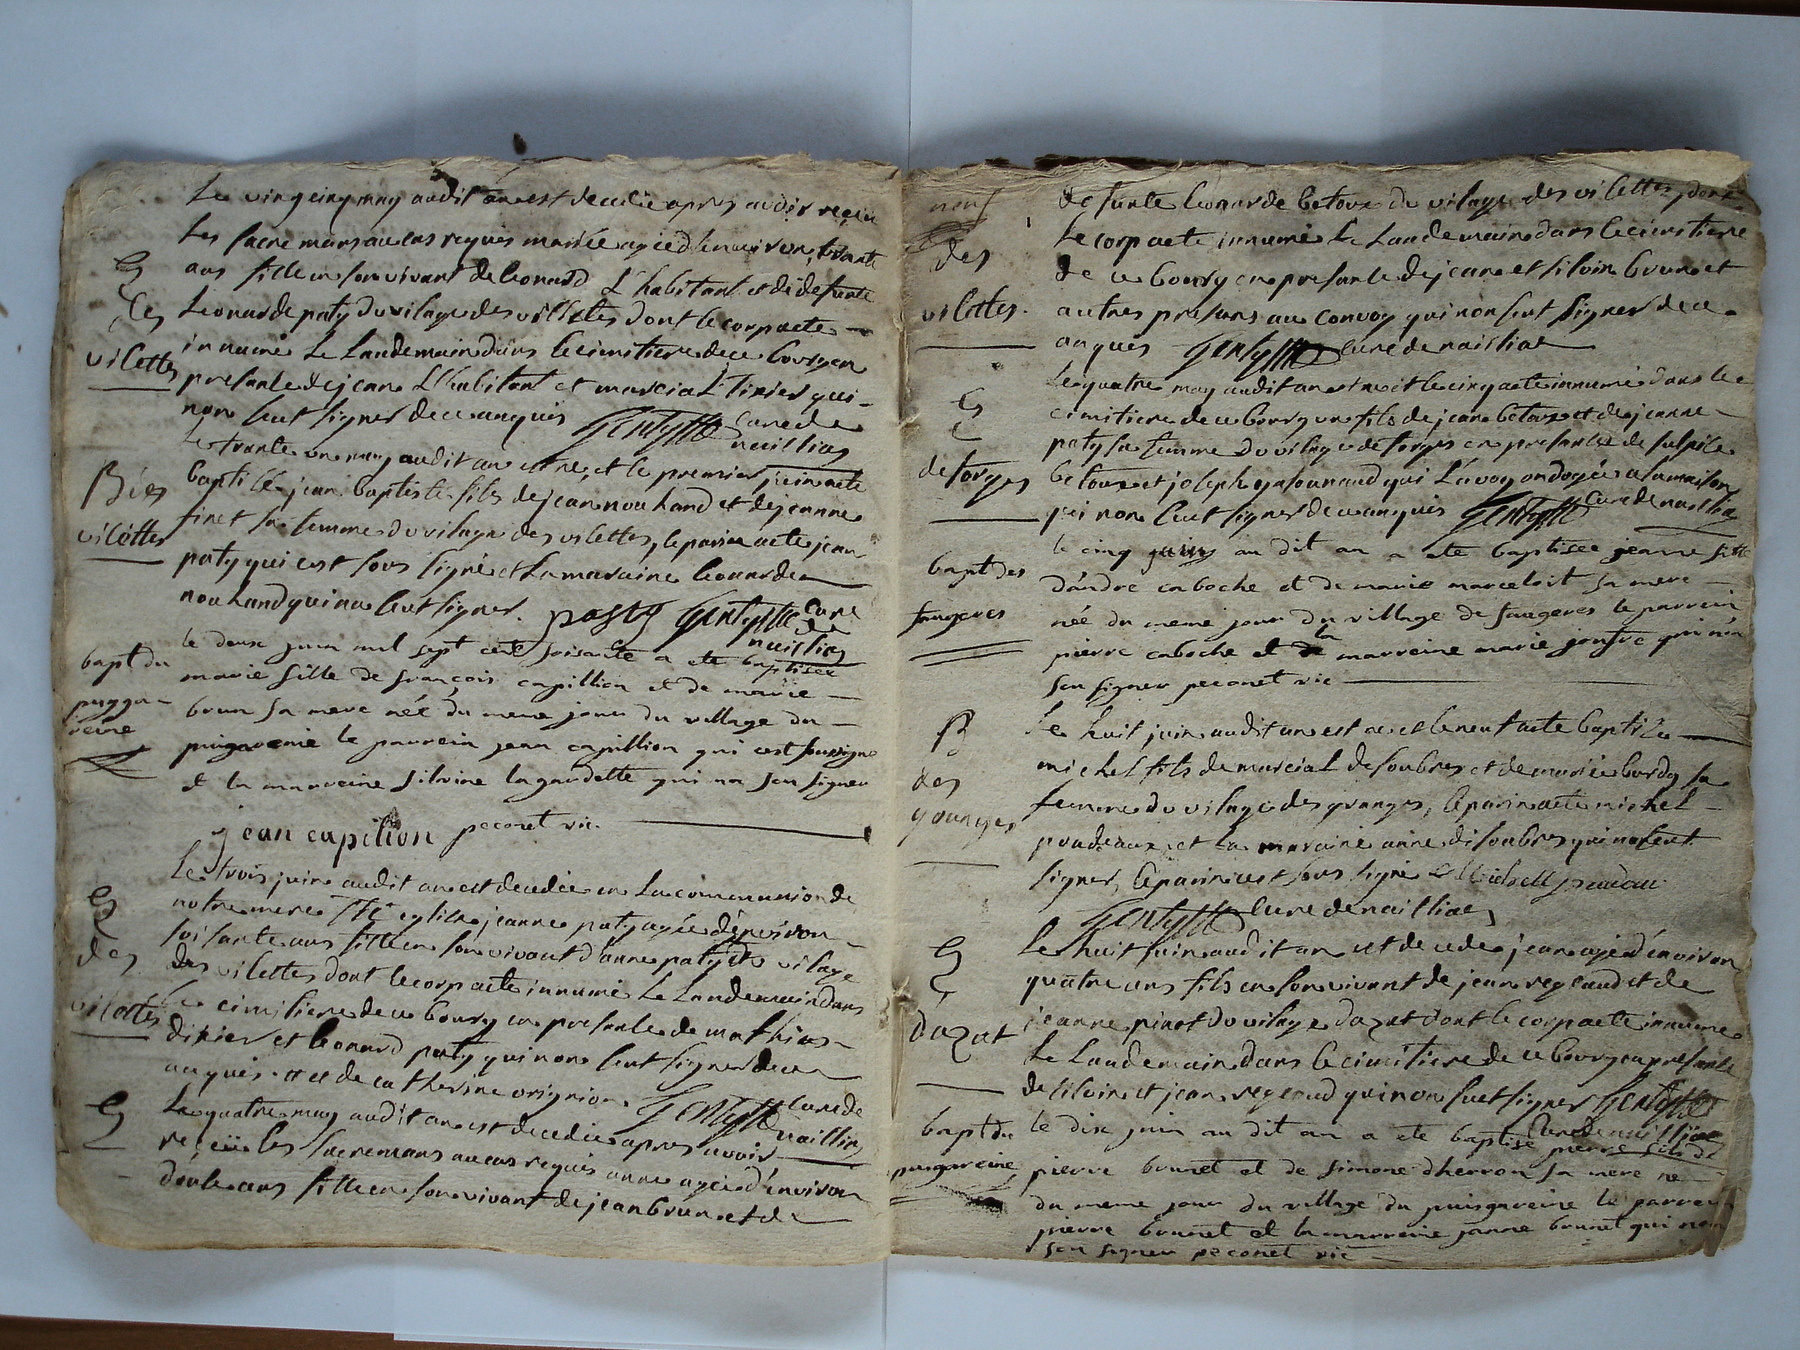 Le vingcinq may audit an est decedée apres avoir reçeu
les sacremans au cas requis marie agée d'enuiron trante
ans fille en son vivant de leonard L'habitant et de defunte
E
des
vilettes
Leonarde paty du vilage des villetes dont le corp a ete
innumé le Landemain dans le cimitiere de ce bourg en
presance de jean L'habitant et marcial Tixier qui
non seut signer de ce anquis Gentysse cure de
naillias
Le trante un may audit an est ne, et le premier juin a ete
B des
vilettes
baptisé jean baptiste fils de jean nouhand et de jeanne
finet sa femme du vilage des vilettes, le parin a ete jean
paty qui est sous signé et la maraine leonarde
nouhand qui na seut signer. pasty Gentysse cure
de
naillias
bapt du
puygareine
le deux juin mil sept cent soisante a ete baptisée
marie fille de françois capillion et de marie
brun sa mere née du meme jour du village du
puigareine le parrein jean capillion qui est soussigne
et la marreine silvine lagardette qui na seu signer
jean capition peconet vic.
E
des
vilettes
Le trois juin audit an est decedée en La communion de
notre mere Ste eglise jeanne paty agée d'environ
soisante ans fille en son vivant d'anne paty du vilage
des vilettes dont le corp a ete innumé le Landemain dans
le cimitiere de ce bourg en presance de mathias
dixier et leonard paty qui non seut signer de ce
anquis et de catherine orignion Gentysse cure de
naillias
E
Le quatre may audit an est decedée apres avoir
reçeü les sacremans au cas requis anne agée d'environ
douse ans fille en son vivant de jean brun et de
des
vilettes.
defunte leonarde betoux du vilage des vilettes, dont
Le corp a ete innumé le Landemain dans le cimitiere
de ce bourg en presance de jean et silvin brun et
autres presans au convoy qui non seut signer de ce
anquis Gentysse cure de naillias
E
de forges
Le quatre may audit an est ne et le cinq a ete innumé dans le
cimitiere de ce bourg un fils de jean betoux et de jeanne
paty sa femme du vilage de forges en presance de sulpice
betoux et joseph qui L'avoy ondoyée a la maison
qui non seut signer de ce anquis Gentysse cure de naillias
bapt des
faugeres
le cinq juin au dit an a ete baptisée jeanne fille
d'andre caboche et de marie marceloit sa mere
née du meme jour du village de faugeres le parrein
pierre caboche et la marreine marie joufre qui n'on
seu signer peconet vic
B
des
granges
Le huit juin audit an est ne et le neuf a ete baptise
michel fils de marcial desoubres et de marie bardy sa
femme du vilage des granges, le parin a ete michel
pradeaux, et la maraine anne desoubres qui na seut
signer, le parin est sous signé Michell pradau
Gentysse cure de naillias
E
dazat
Le huit juin audit an est decede jean agé d'environ
quatre ans fils en son vivant de jean regeaud et de
jeanne pinot du vilage dazat dont le corp a ete innume
Le Landemain dans le cimitiere de ce bourg en presance
de silvin et jean regeaud qui non seut signer Gentysse
cure de naillias
bapt du
puigareine
le dix juin au dit an a ete baptisé pierre fils de
pierre brunet et de simone dherron sa mere ne
du meme jour du village du puisgareine le parrein
pierre brunet et la marreine janne brunet qui non
seu signer peconet vic